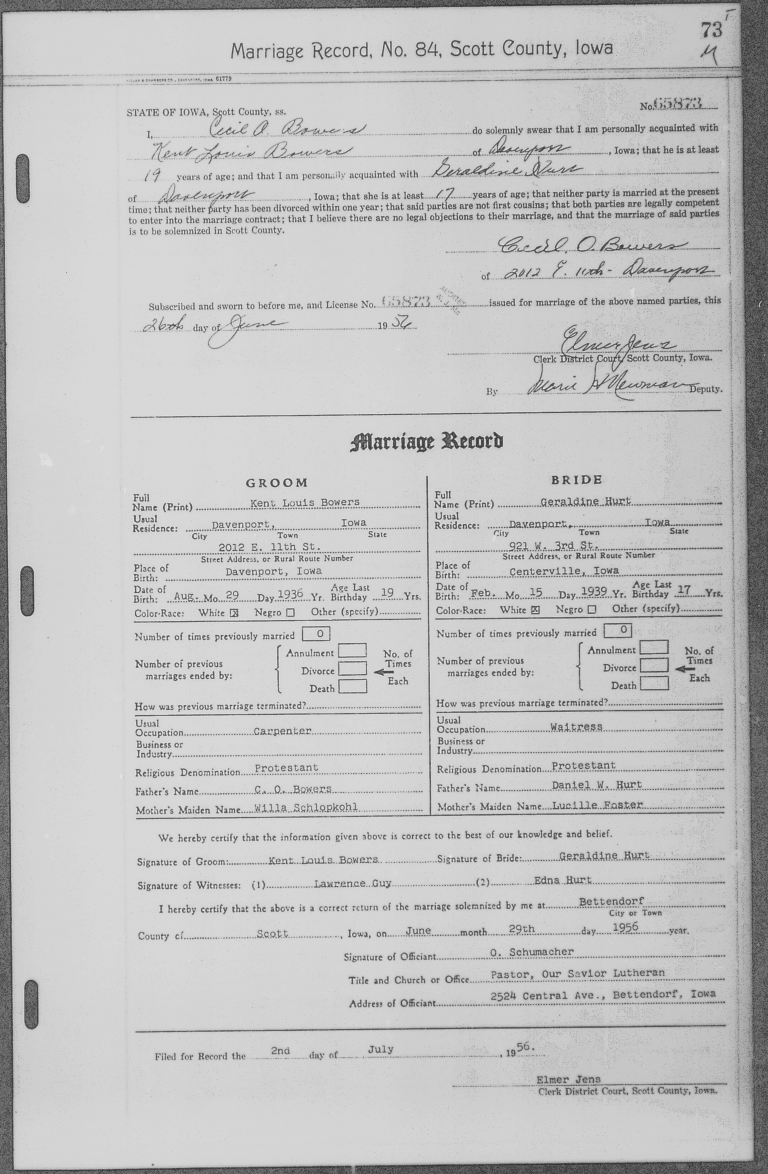 73
M
Marriage Record, No. 84, Scott County, Iowa
61779
STATE OF IOWA, Scott County, ss. No. 65873
I, Cecil O. Bowers do solemnly swear that I am personally acquainted with
Kent Louis Bowers of Davenport, Iowa; that he is at least
19 years of age; and that I am personally acquainted with Geraldine Hurt
of Davenport, Iowa; that she is at least 17 years of age; that neither party is married at the present
time; that neither party has been divorced within one year; that said parties are not first cousins; that both parties are legally competent
to enter into the marriage contract; that I believe there are no legal objections to their marriage, and that the marriage of said parties
is to be solemnized in Scott County.
Cecil O. Bowers
of 2012 E. 11th - Davenport
Subscribed and sworn to before me, and License No. 65873 issued for marriage of the above named parties, this
26th day of June 1956
Elmer Jens
Clerk District Court, Scott County, Iowa.
By Marie H Newman Deputy.
Marriage Record
GROOM
Full
Name (Print) Kent Louis Bowers
Usual
Residence: Davenport, Iowa
City Town State
2012 E. 11th St.
Street Address, or Rural Route Number
Place of
Birth: Davenport, Iowa
Date of Age Last
Birth: Aug. Mo. 29 Day 1936 Yr. Birthday 19 Yrs.
Color-Race: White ☒ Negro ☐ Other (specify)
Number of times previously married 0
Annulment No. of
Number of previous Divorce Times
marriages ended by: Death Each
How was previous marriage terminated?
Usual
Occupation Carpenter
Business or
Industry
Religious Denomination Protestant
Father's Name C. O. Bowers
Mother's Maiden Name Willa Schlopkohl
BRIDE
Full
Name (Print) Geraldine Hurt
Usual
Residence: Davenport, Iowa
City Town State
921 W. 3rd St.
Street Address, or Rural Route Number
Place of
Birth: Centerville, Iowa
Date of Age Last
Birth: Feb. Mo. 15 Day 1939 Yr. Birthday 17 Yrs.
Color-Race: White ☒ Negro ☐ Other (specify)
Number of times previously married 0
Annulment No. of
Number of previous Divorce Times
marriages ended by: Death Each
How was previous marriage terminated?
Usual
Occupation Waitress
Business or
Industry
Religious Denomination Protestant
Father's Name Daniel W. Hurt
Mother's Maiden Name Lucille Foster
We hereby certify that the information given above is correct to the best of our knowledge and belief.
Signature of Groom: Kent Louis Bowers Signature of Bride: Geraldine Hurt
Signature of Witnesses: (1) Lawrence Guy (2) Edna Hurt
I hereby certify that the above is a correct return of the marriage solemnized by me at Bettendorf
City or Town
County of Scott, Iowa, on June month 29th day 1956 year.
Signature of Officiant O. Schumacher
Title and Church or Office Pastor, Our Savior Lutheran
Address of Officiant 2524 Central Ave., Bettendorf, Iowa
Filed for Record the 2nd day of July, 1956.
Elmer Jens
Clerk District Court, Scott County, Iowa.